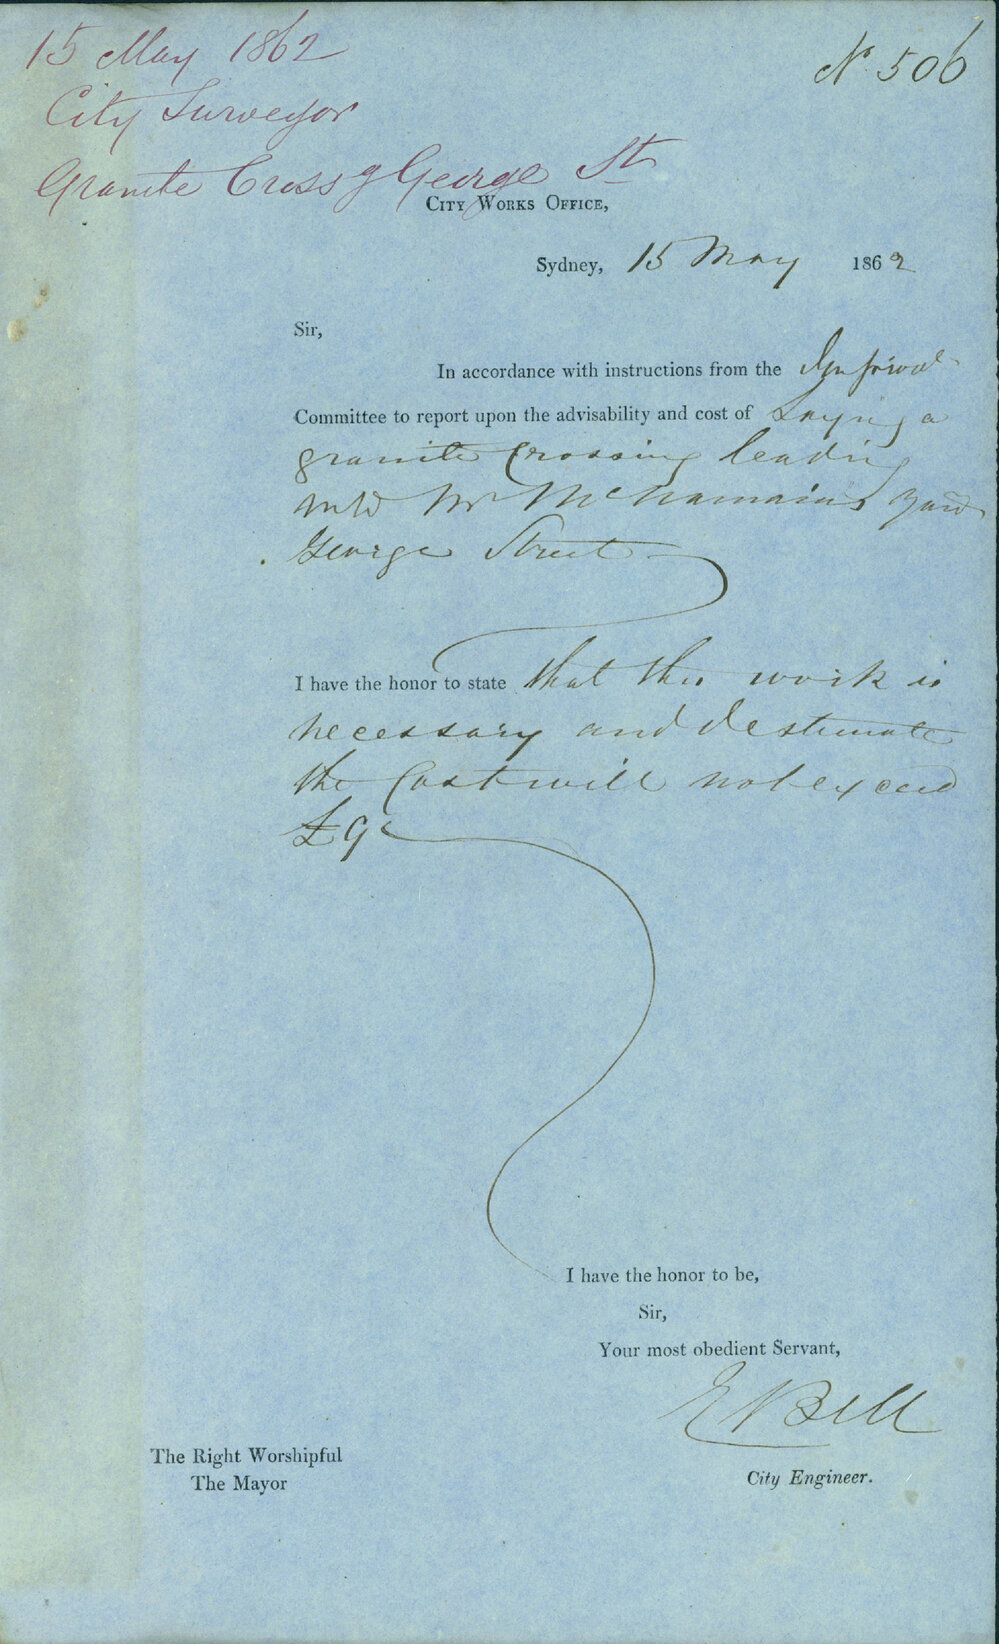 15 May 1862
No 506
City Surveyor
Granite Crossg George St
CITY WORKS OFFICE,
Sydney, 15 May 1862
Sir,
In accordance with instructions from the
Committee to report upon the advisability and cost of Laying a
granite Crossing leading
into Mr McNamaras Yard
George Street
I have the honor to state that this work is
necessary and I estimate
the Cost will not exceed
£9
I have the honor to be,
Sir,
Your most obedient Servant,
E Bell
The Right Worshipful
The Mayor
City Engineer.